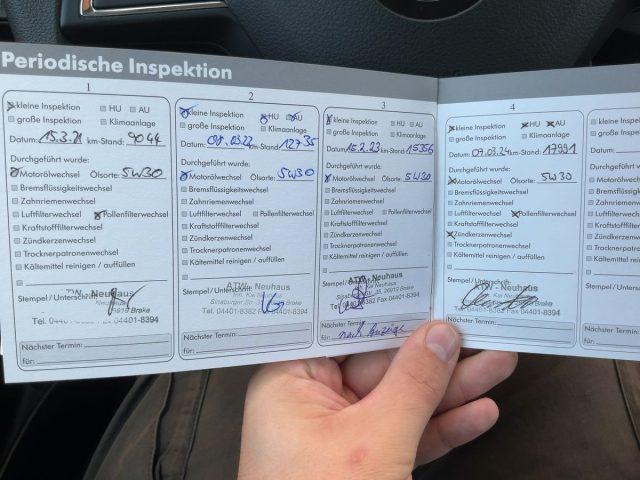 Periodische Inspektion
1
kleine Inspektion HU AU
große Inspektion Klimaanlage
Datum: 15.3.21 km-Stand: 9044
Durchgeführt wurde:
Motorölwechsel Ölsorte: 5W30
Bremsflüssigkeitswechsel
Zahnriemenwechsel
Luftfilterwechsel Pollenfilterwechsel
Kraftstofffilterwechsel
Zündkerzenwechsel
Trocknerpatronenwechsel
Kältemittel reinigen / auffüllen
Stempel / Unterschrift: Neuhaus
Brake
Tel. 04401-8394
Nächster Termin:
für:
2
kleine Inspektion HU AU
große Inspektion Klimaanlage
Datum: 08.03.22 km-Stand: 12735
Durchgeführt wurde:
Motorölwechsel Ölsorte: 5W30
Bremsflüssigkeitswechsel
Zahnriemenwechsel
Luftfilterwechsel Pollenfilterwechsel
Kraftstofffilterwechsel
Zündkerzenwechsel
Trocknerpatronenwechsel
Kältemittel reinigen / auffüllen
ATW - Neuhaus
Stempel / Unterschrift: Inh. Kai Neuhaus
Brake
Tel. 04401-8382 Fax 04401-8394
Nächster Termin:
für:
3
kleine Inspektion HU AU
große Inspektion Klimaanlage
Datum: 15.2.23 km-Stand: 15356
Durchgeführt wurde:
Motorölwechsel Ölsorte: 5W30
Bremsflüssigkeitswechsel
Zahnriemenwechsel
Luftfilterwechsel Pollenfilterwechsel
Kraftstofffilterwechsel
Zündkerzenwechsel
Trocknerpatronenwechsel
Kältemittel reinigen / auffüllen
ATW - Neuhaus
Stempel / Unterschrift: Kai Neuhaus
26919 Brake
Tel. 8382 Fax 04401-8394
Nächster Termin:
für: nach Anzeige
4
kleine Inspektion HU AU
große Inspektion Klimaanlage
Datum: 07.03.24 km-Stand: 17991
Durchgeführt wurde:
Motorölwechsel Ölsorte: 5W30
Bremsflüssigkeitswechsel
Zahnriemenwechsel
Luftfilterwechsel Pollenfilterwechsel
Kraftstofffilterwechsel
Zündkerzenwechsel
Trocknerpatronenwechsel
Kältemittel reinigen / auffüllen
ATW - Neuhaus
Stempel / Unterschrift:
Brake
Tel. 04401-8382 Fax 04401-8394
Nächster Termin:
für:
kleine
große
Datum:
Durchgeführt